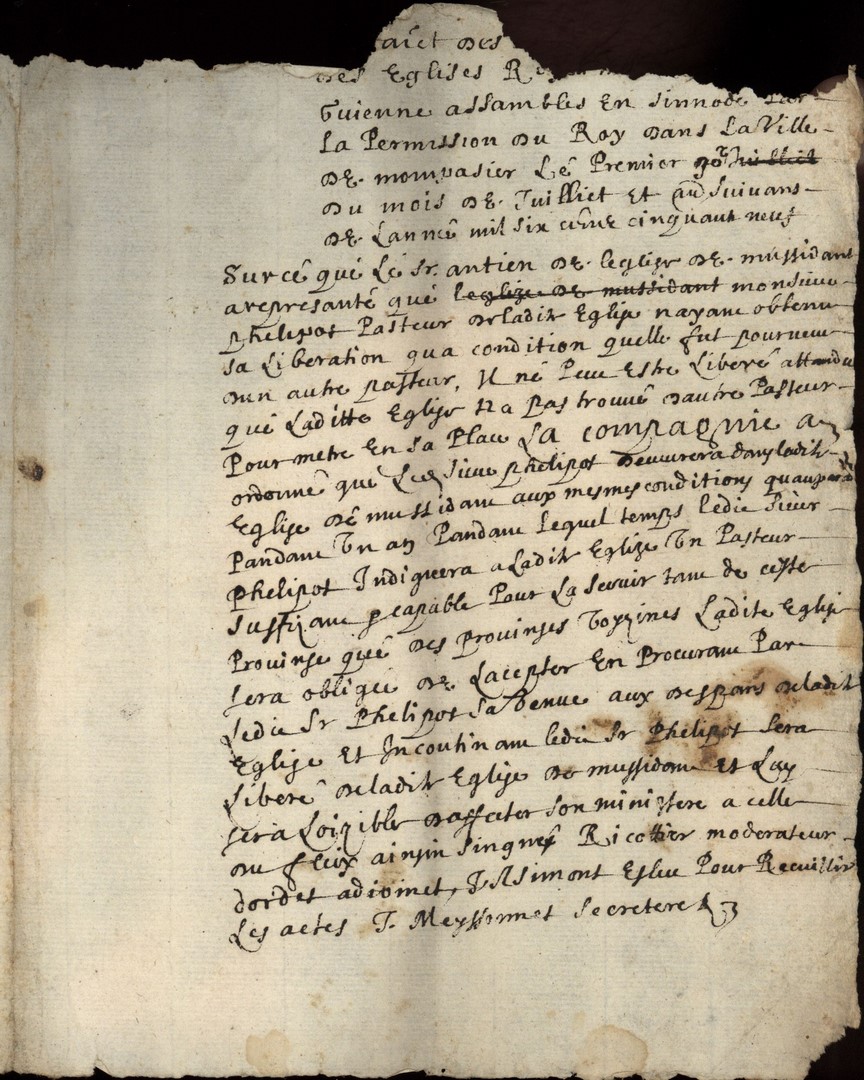 aict des
des Eglises R
Guienne assambles En sinnode Par
La Permission du Roy dans La Ville
de mompasier Le Premier Juilliet
du mois de Juilliet Et suivans
de Lanneê mil six cinquant neuf
Surcê quê Le Sr. antien de leglise de mussidant
a represantê quê leglize de mussidant monsieur
phelipot Pasteur deladite Eglise nayant obtenu
sa Liberation qua condition quelle fut pourveue
dun autre pasteur, Il nê Peut Estre Liberê attandu
quê Laditte Eglise Na pas trouvê dautre Pasteur
Pour metre En sa Place La compagnie a
ordonnê quê Led Sieur phelipot demurera dans ladite
Eglise dê mussidant aux mesmes conditions quaupara
Pandant Un an Pandant lequel temps ledit Sieur
phelipot Indiquera a Ladite Eglize Un Pasteur
suffizant & capable Pour La Servir tant de ceste
Provinse quê des provinses voyzines Ladite Eglise
sera obligee de Lacepter En Procurant Par
Ledit Sr Phelipot sa Venue aux despans deladite
Eglise Et Incontinant ledit Sr Phelipot sera
Liberê deladite Eglise de mussidant Et Luy
sera Loizible daffecter son ministere a celle
du fleix ainsin singnes Ricottier moderateur
dordes adioinct, Simont Esleu Pour Recuillir
Les actes J. Meyssonnes Secretere